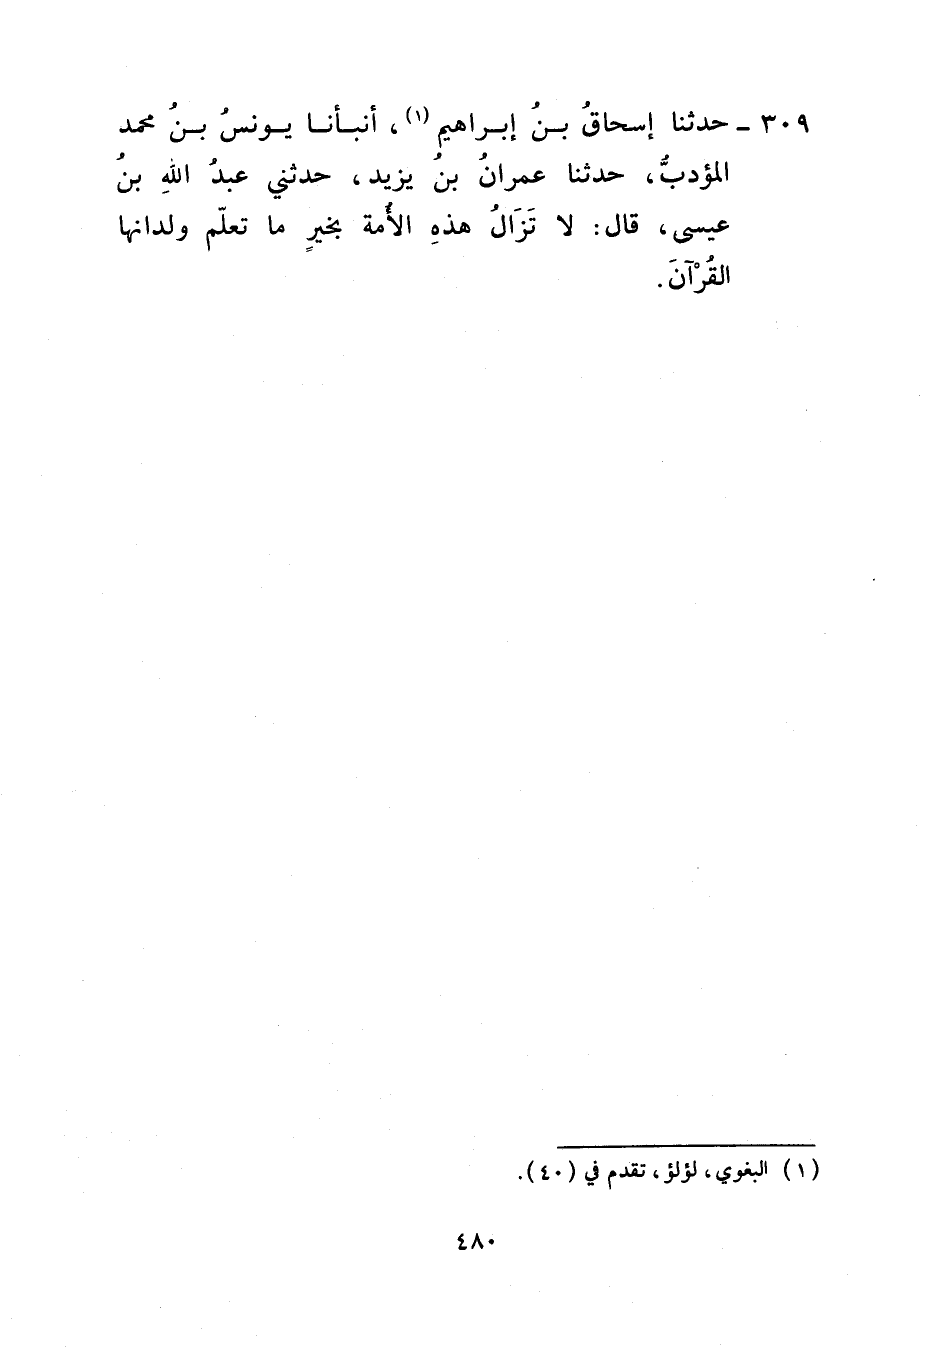 ٣٠٩ - حدثنا إسحاقُ بـنُ إبـراهيم(١)، أنبـأنـا يـونسُ بـنُ محمد
المؤدبُّ، حدثنا عمرانُ بنُ يزيد، حدثني عبدُ اللهِ بنُ
عيسى، قال: لا تَزَالُ هذهِ الأُمة بخيرٍ ما تعلّم ولدانها
القُرْآنَ.
(١) البغوي، لؤلؤ، تقدم في (٤٠).
٤٨٠